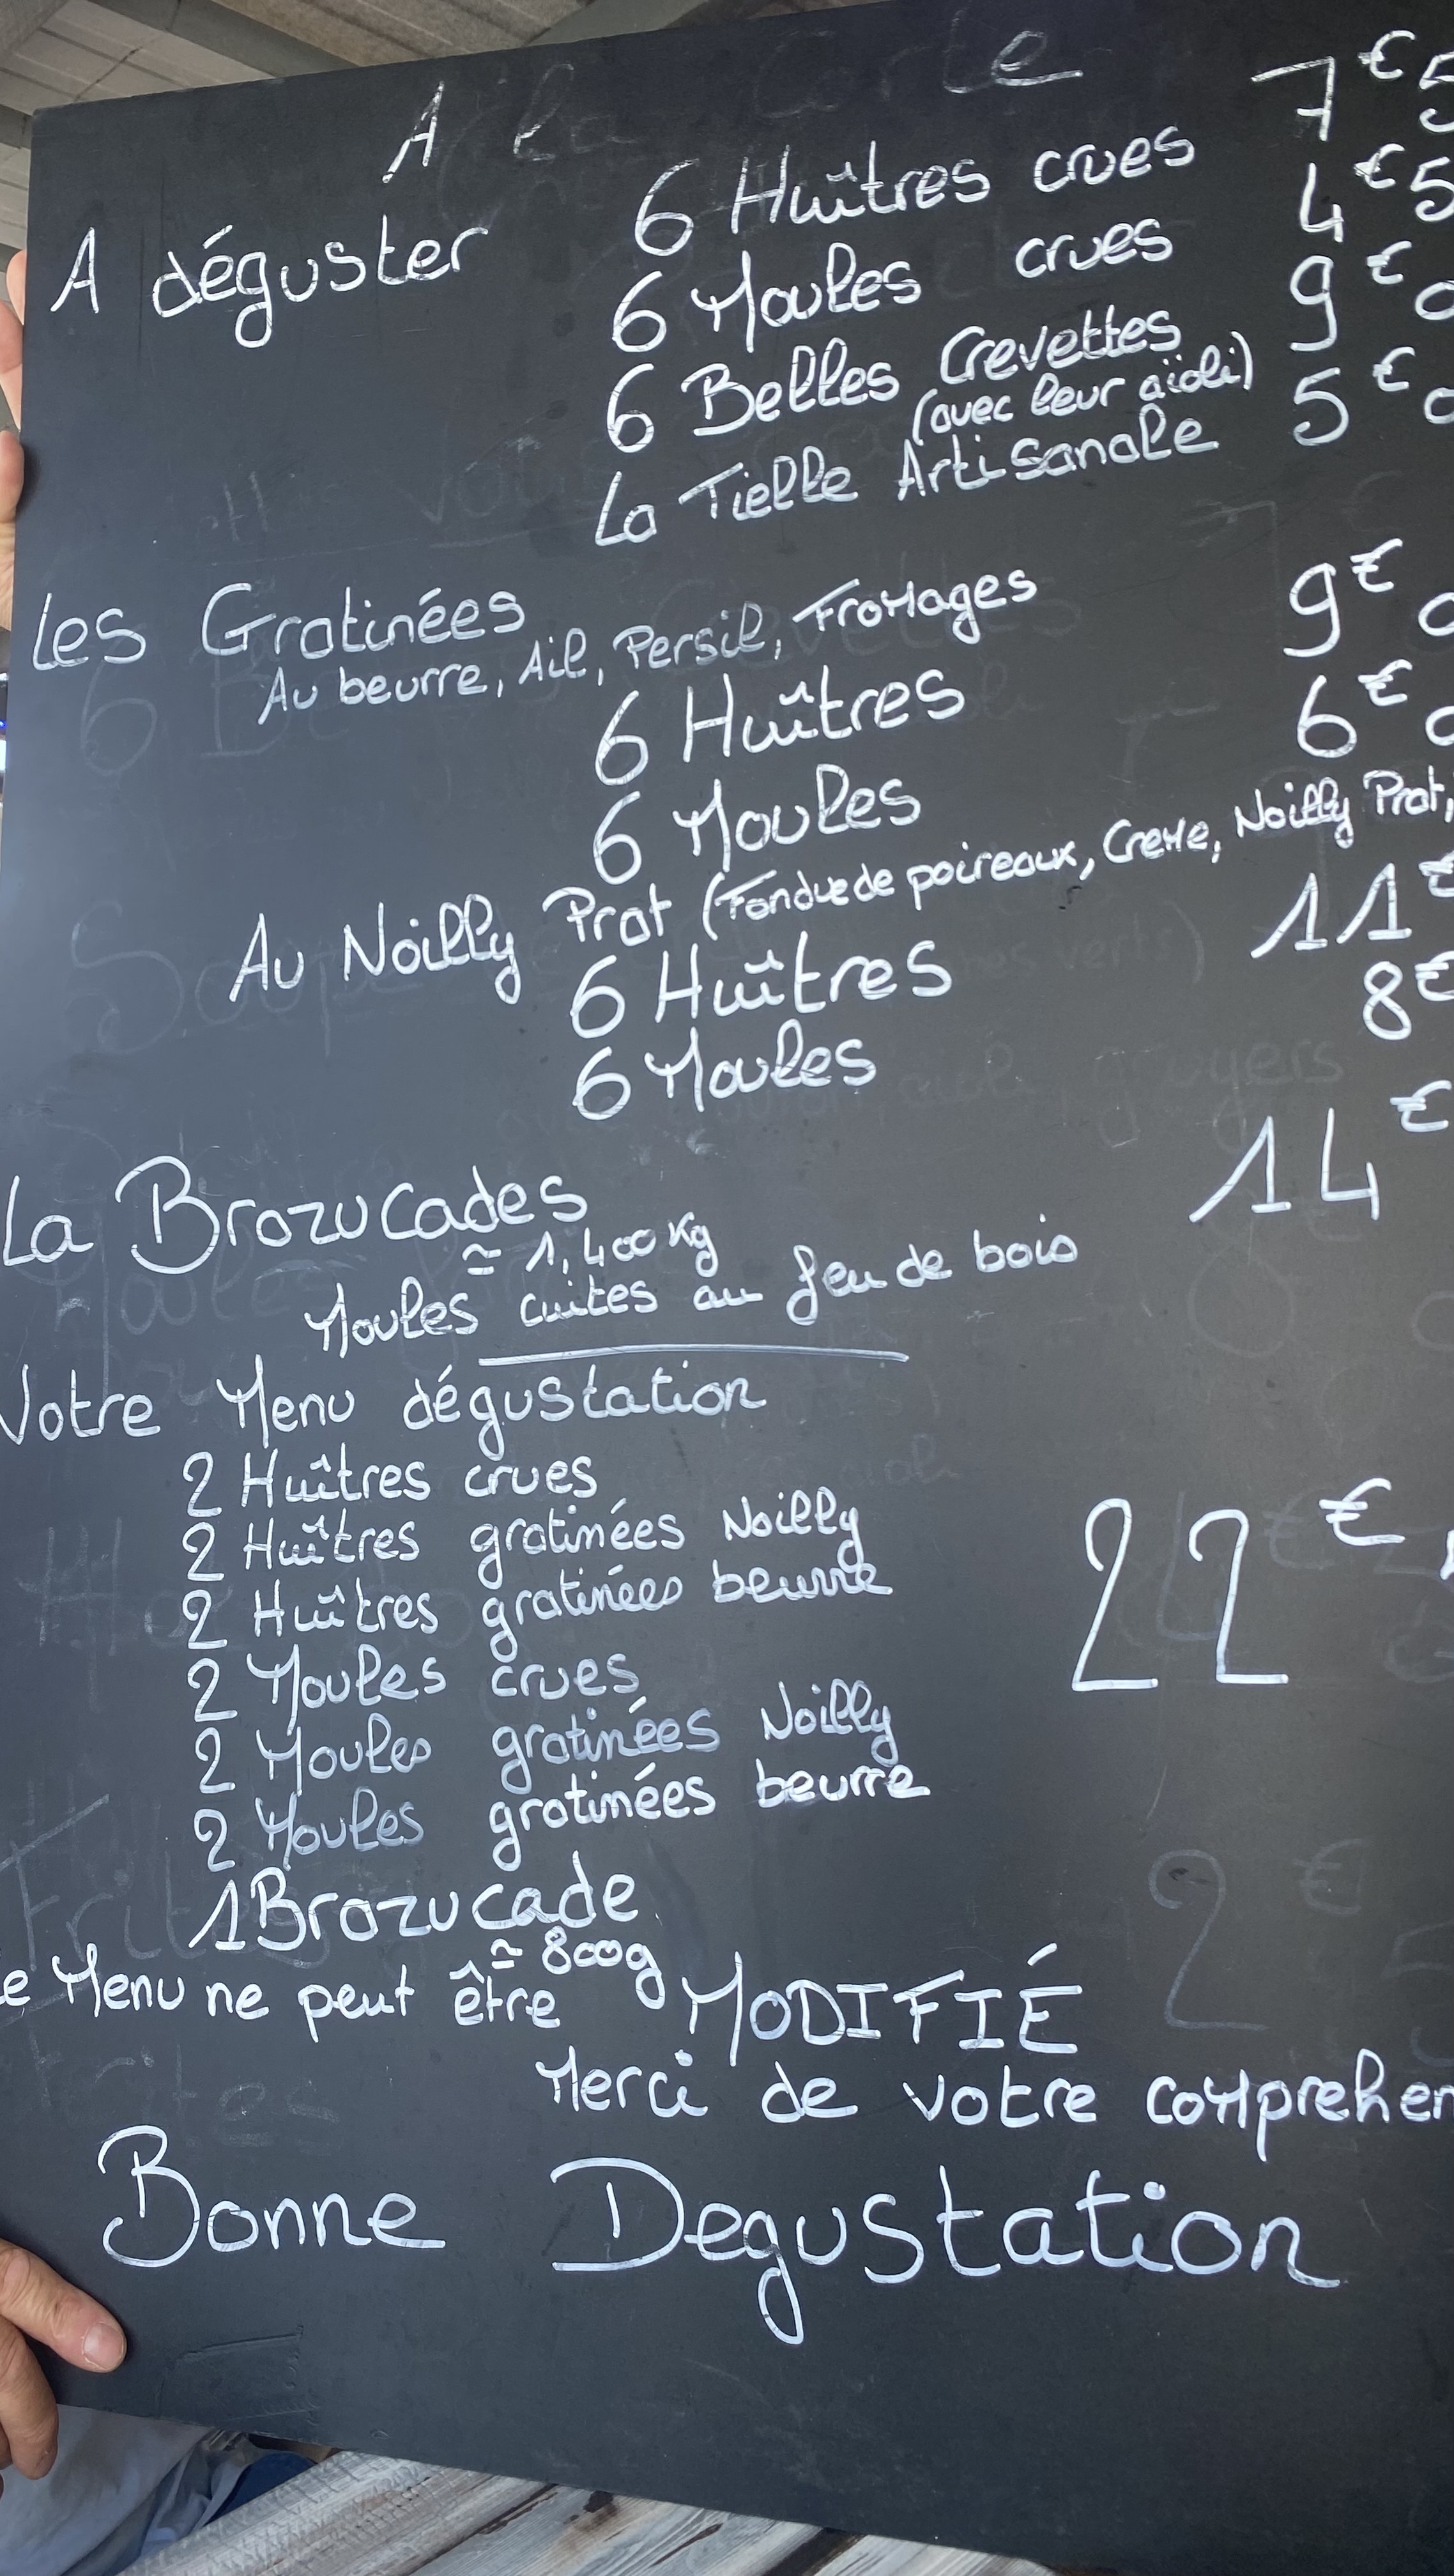 A la Carte
A déguster 6 Huîtres crues 7€5
6 Moules crues 4€5
6 Belles Crevettes 9€0
(avec leur aïoli)
La Tielle Artisanale 5€0
Les Gratinées
Au beurre, Ail, Persil, Fromages
6 Huîtres 9€0
6 Moules 6€0
Au Noilly Prat (Fondue de poireaux, Creme, Noilly Prat,
6 Huîtres 11€
6 Moules 8€
La Brozucades 14€
≃ 1,400 Kg
Moules cuites au feu de bois
Votre Menu dégustation
2 Huîtres crues
2 Huîtres gratinées Noilly
2 Huîtres gratinées beurre
22€
2 Moules crues
2 Moules gratinées Noilly
2 Moules gratinées beurre
1 Brozucade
≃ 800g
e Menu ne peut être MODIFIÉ
Merci de votre comprehen
Bonne Degustation